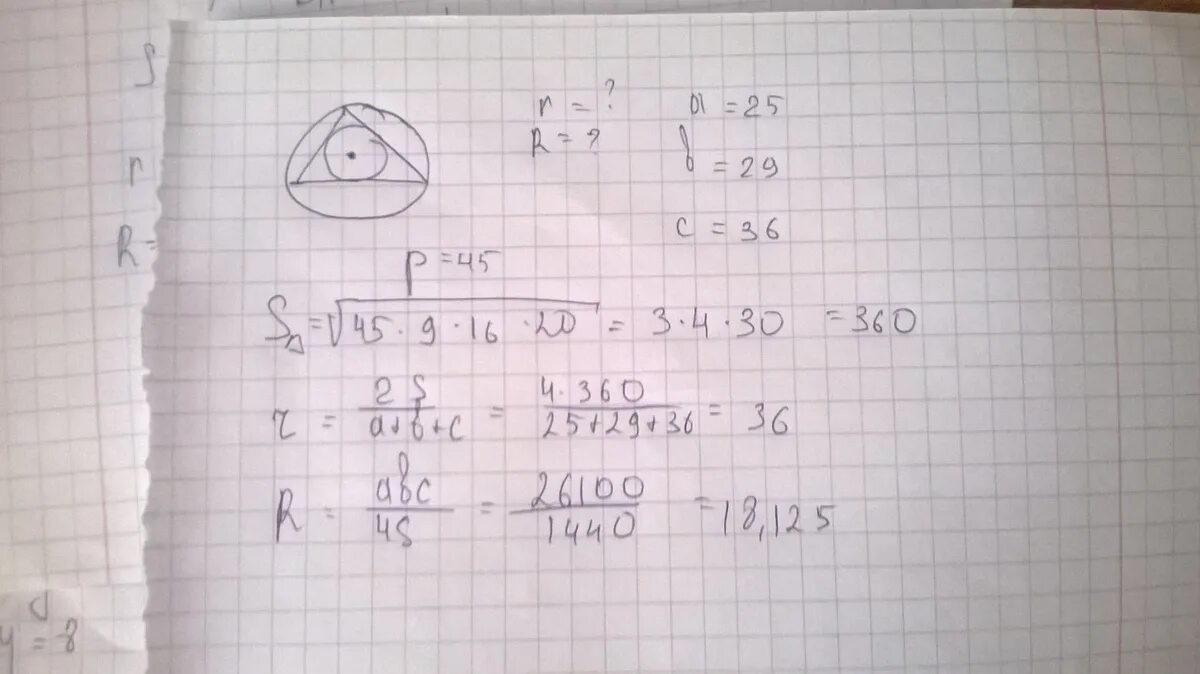 S
r
R=
r = ? a = 25
R = ? b = 29
c = 36
p = 45
S△ = √45 · 9 · 16 · 20 = 3 · 4 · 30 = 360
r = 2S / a+b+c = 4 · 360 / 25+29+36 = 36
R = abc / 4S = 26100 / 1440 = 18,125
y = 8